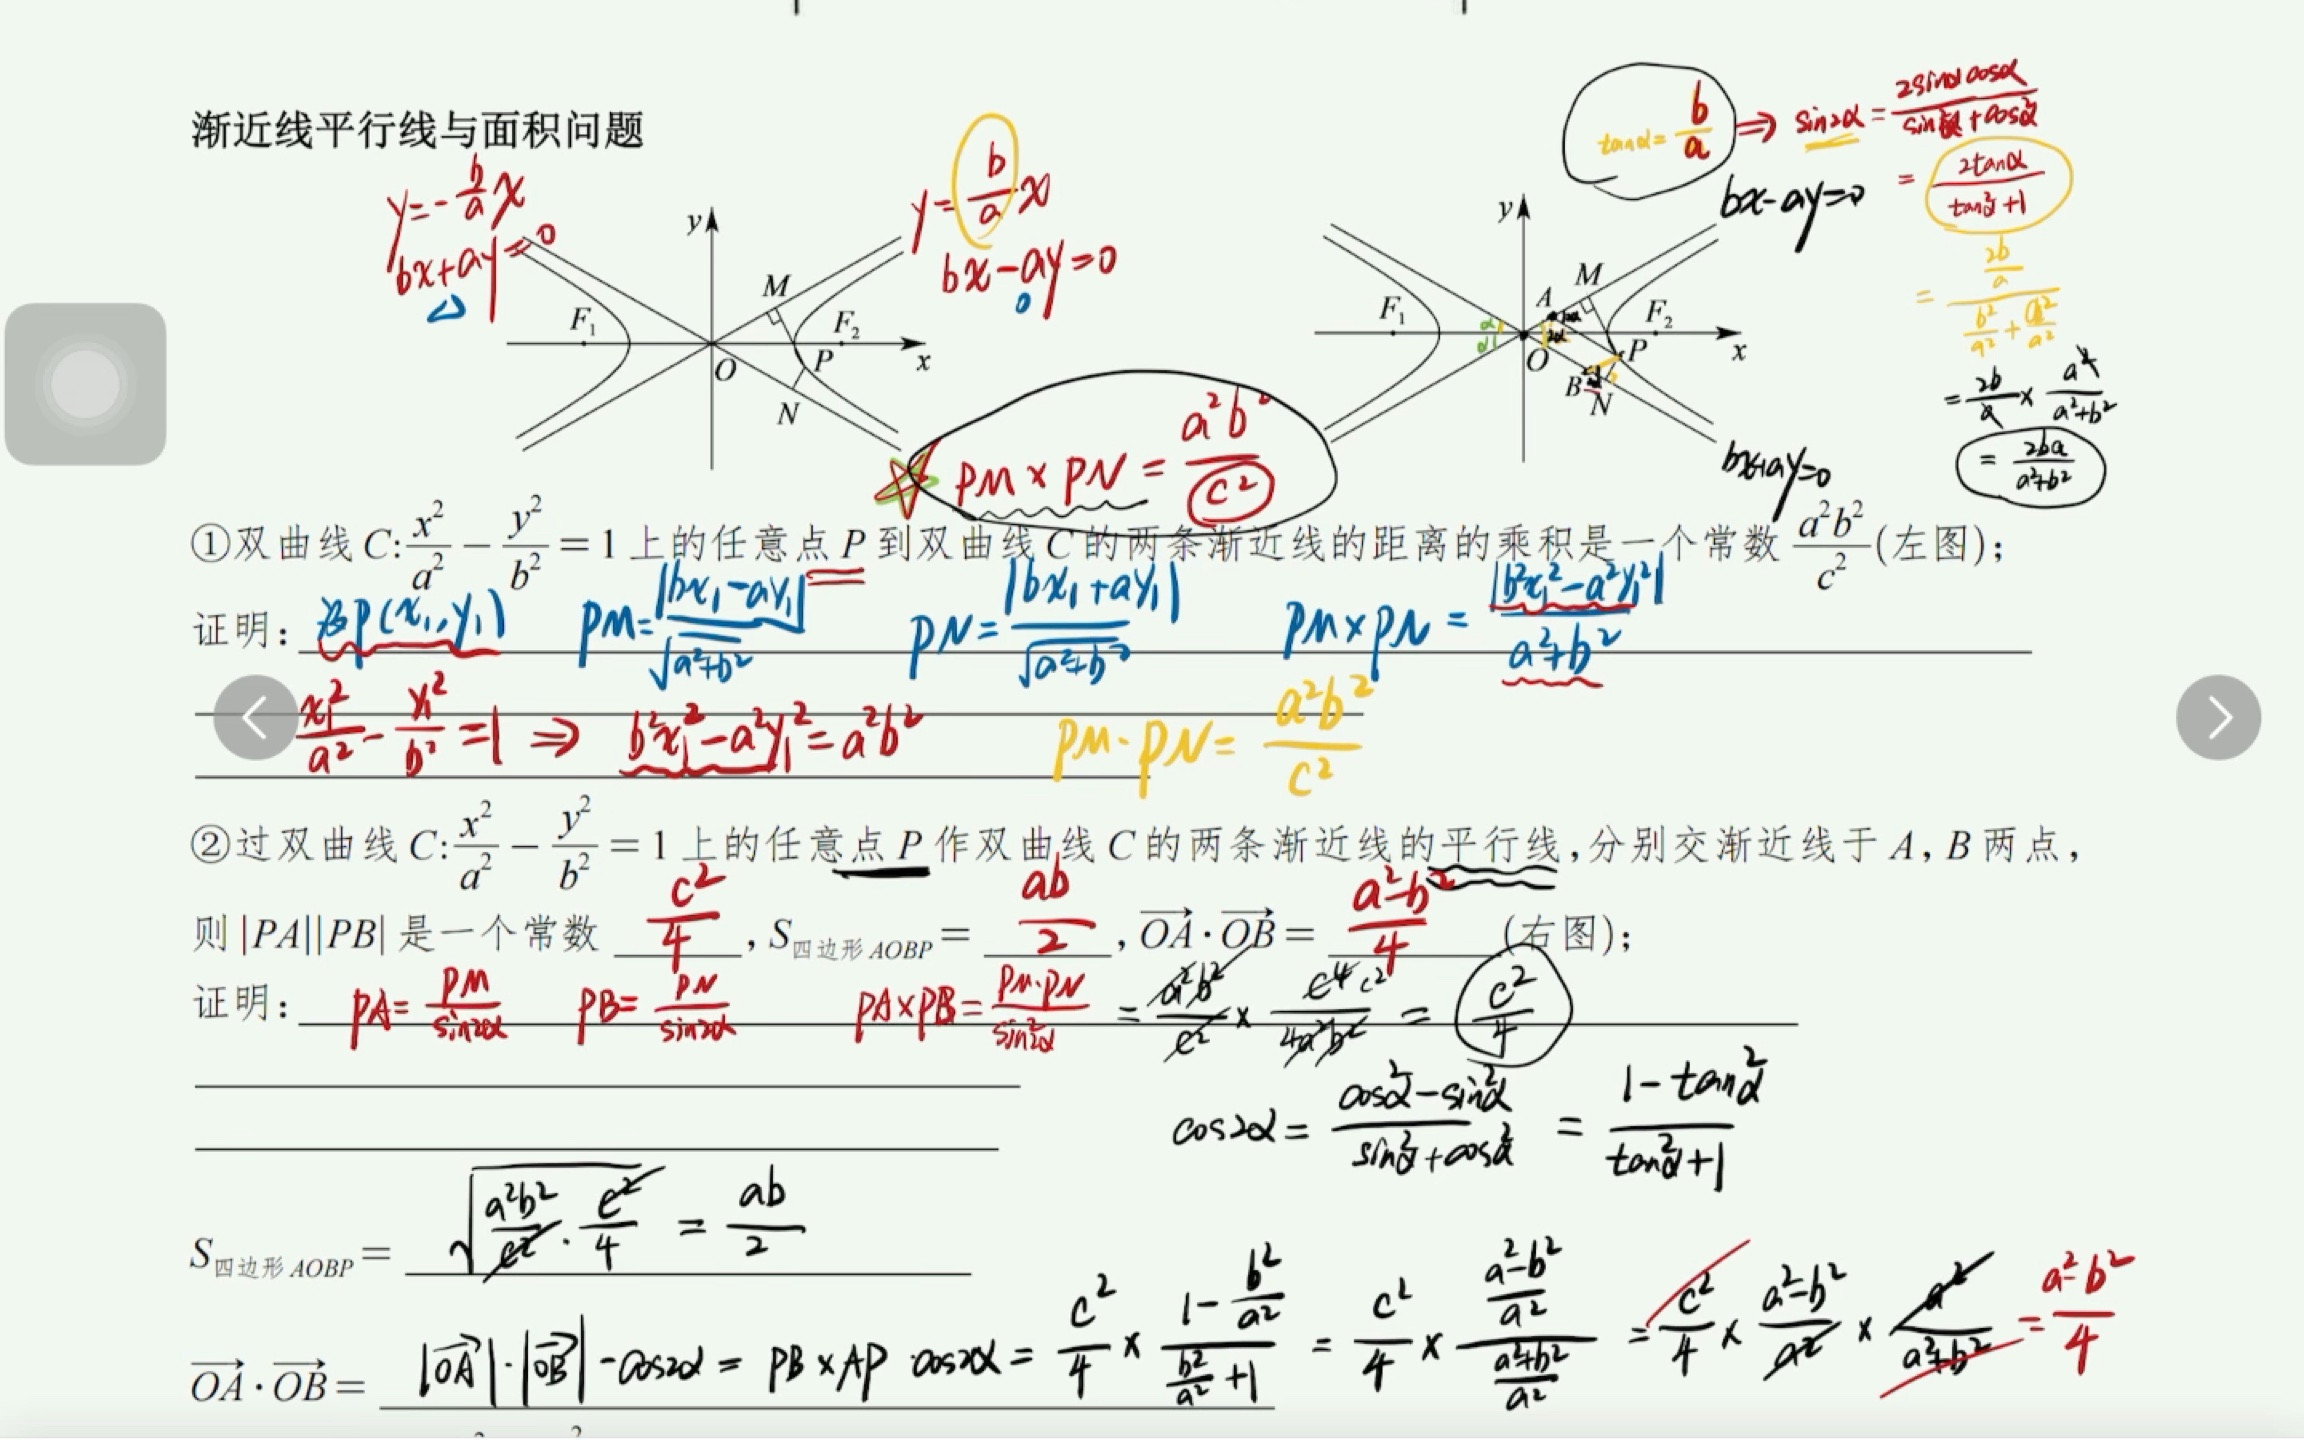 渐近线平行线与面积问题
y=-b/a x
bx+ay=0
y=b/a x
bx-ay=0
y
M
F₁
F₂
O
P
x
N
tanα=b/a ⇒ sin2α=2sinαcosα/(sin²α+cos²α)
=2tanα/(tan²α+1)
=(2b/a)/(b²/a²+a²/a²)
=2b/a×a²/(a²+b²)
=2ba/(a²+b²)
bx-ay=0
y
M
A
F₁
F₂
α
α
2α
O
P
x
B
N
bx+ay=0
PM×PN=a²b²/c²
①双曲线C:x²/a²-y²/b²=1上的任意点P到双曲线C的两条渐近线的距离的乘积是一个常数a²b²/c²(左图);
证明: 设P(x₁,y₁) PM=|bx₁-ay₁|/√(a²+b²) PN=|bx₁+ay₁|/√(a²+b²) PM×PN=|b²x₁²-a²y₁²|/(a²+b²)
x₁²/a²-y₁²/b²=1 ⇒ b²x₁²-a²y₁²=a²b² PM·PN=a²b²/c²
②过双曲线C:x²/a²-y²/b²=1上的任意点P作双曲线C的两条渐近线的平行线,分别交渐近线于A,B两点,
则|PA||PB|是一个常数 c²/4 ,S四边形AOBP= ab/2 ,OA·OB= (a²-b²)/4 (右图);
证明: PA=PM/sin2α PB=PN/sin2α PA×PB=PM·PN/sin²2α =a²b²/c²×c⁴/4a²b² c² =c²/4
cos2α=(cos²α-sin²α)/(sin²α+cos²α)=(1-tan²α)/(tan²α+1)
S四边形AOBP= √(a²b²/c²·c²/4)=ab/2
OA·OB= |OA|·|OB|-cos2α=PB×AP·cos2α=c²/4×(1-b²/a²)/(b²/a²+1)=c²/4×((a²-b²)/a²)/((a²+b²)/a²)=c²/4×(a²-b²)/a²×a²/(a²+b²)=(a²-b²)/4